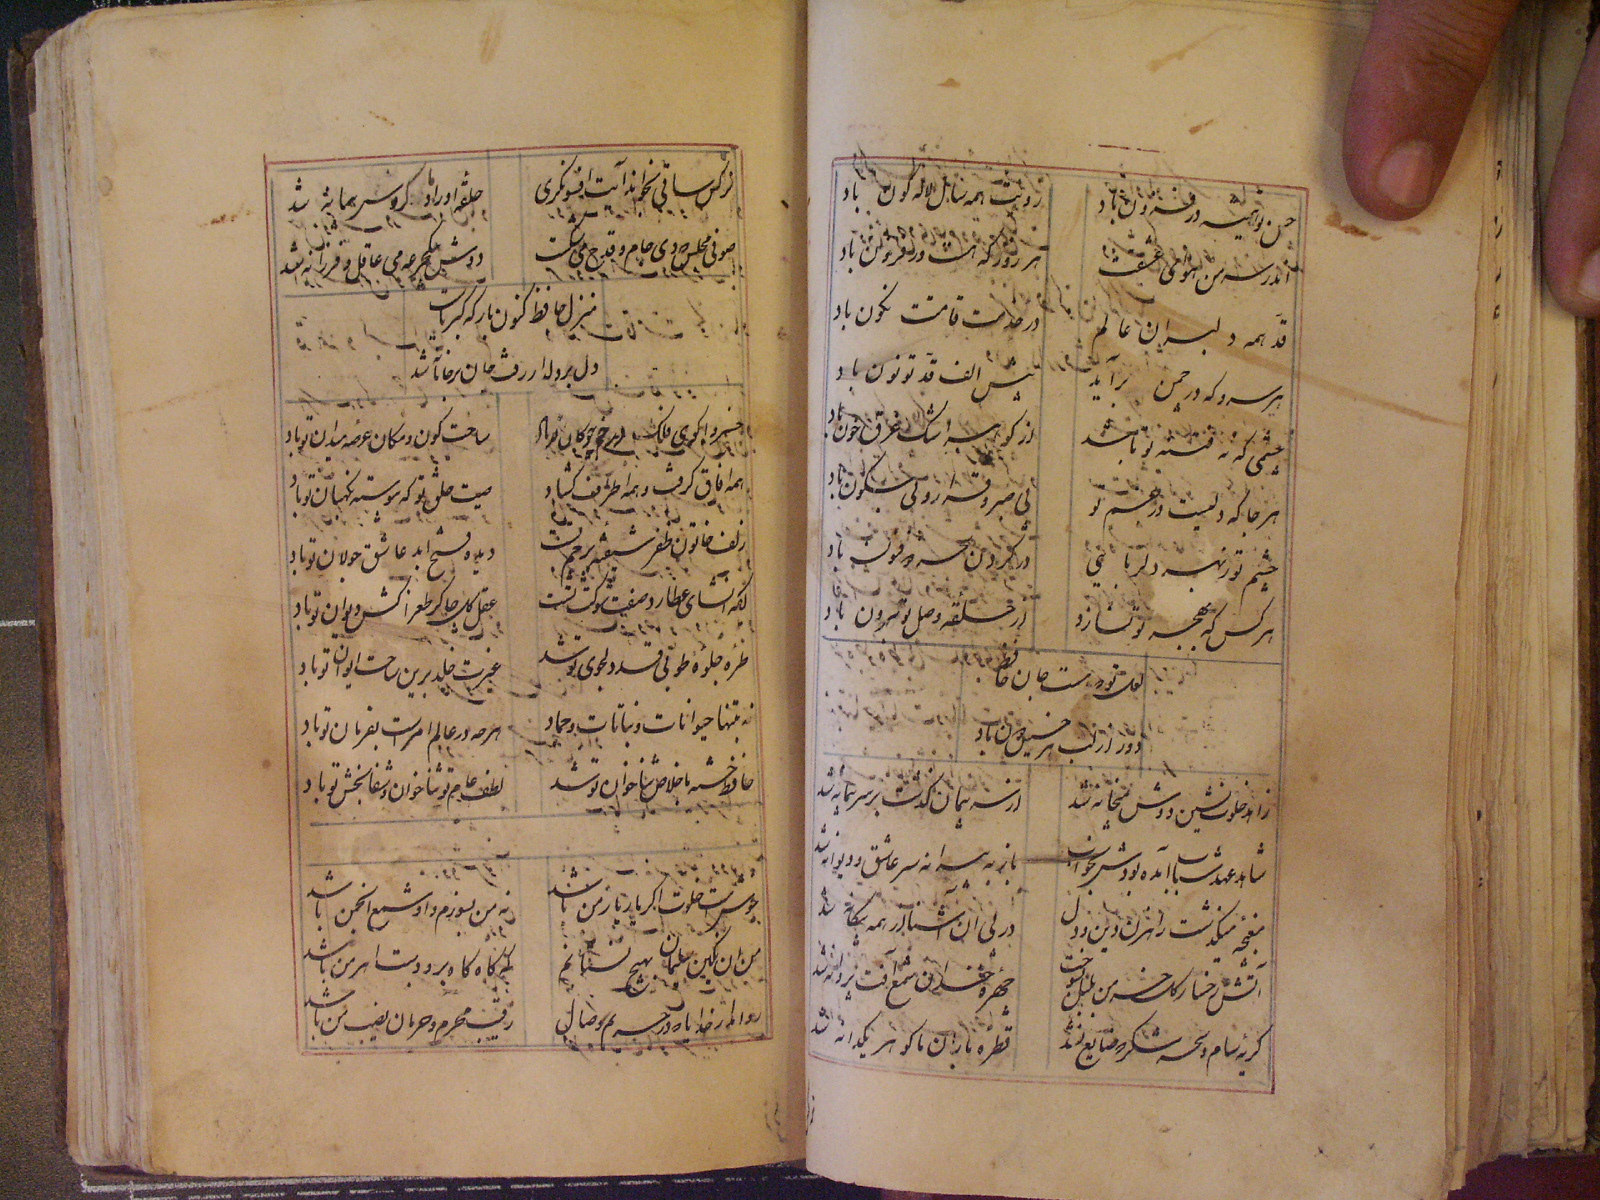 حسن تو همیشه در فزون باد رویت همه سال لاله گون باد
اندر سر من هوای عشقت هر روز که هست در فزون باد
قد همه دلبران عالم در خدمت قامتت نگون باد
هر سرو که در چمن برآید پیش الف قد تو نون باد
چشمی که نه فتنه تو باشد از گوهر اشک غرق خون باد
هر جا که دلیست در غم تو بی صبر و قرار و بی سکون باد
چشم تو ز بهر دلربایی در کردن سحر ذوفنون باد
هر کس که بهجر تو نسازد از حلقه وصل تو برون باد
لعل تو که هست جان حافظ
دور از لب هر خسیس دون باد
زاهد خلوت نشین دوش بمیخانه شد از سر پیمان گذشت بر سر پیمانه شد
شاهد عهد شباب آمده بودش بخواب باز به پیرانه سر عاشق و دیوانه شد
مغبچه میگذشت راهزن دین و دل در پی آن آشنا از همه بیگانه شد
آتش رخسار گل خرمن بلبل بسوخت چهره خندان شمع آفت پروانه شد
گریه شام و سحر شکر که ضایع نشد قطره باران ما گوهر یکدانه شد
نرکس ساقی بخواند آیت افسونکری حلقه اوراد ما کردش پیمانه شد
صوفی مجلس که دی جام و قدح می شکست دوش بیکجرعه می عاقل و فرزانه شد
منزل حافظ کنون بارگه کبریاست
دل بر دلدار رفت جان بر جانانه شد
خسروا کوی فلک در خم چوکان تو باد ساحت کون و مکان عرصه میدان تو باد
همه افاق گرفت و همه اطراف گشاد صیت خلق تو که پیوسته نگهبان تو باد
زلف خاتون ظفر شیفته پرچم تست دیده فتح ابد عاشق جولان تو باد
ایکه انشای عطارد صفت شوکت تست عقل کل چاکر طغراکش دیوان تو باد
طیره جلوه طوبی قد دلجوی تو شد غیرت خلد برین ساحت ایوان تو باد
نه بتنها حیوانات و نباتات و جماد هرچه در عالم امرست بفرمان تو باد
حافظ خسته باخلاص ثناخوان تو شد لطف عام تو شفابخش ثناخوان تو باد
خوش است خلوت اگر یار یار من باشد نه من بسوزم و او شمع انجمن باشد
من ان نگین سلیمان بهیچ نستانم که گاه گاه برو دست اهرمن باشد
روا مدار خدایا که در حریم وصال رقیب محرم و حرمان نصیب من باشد